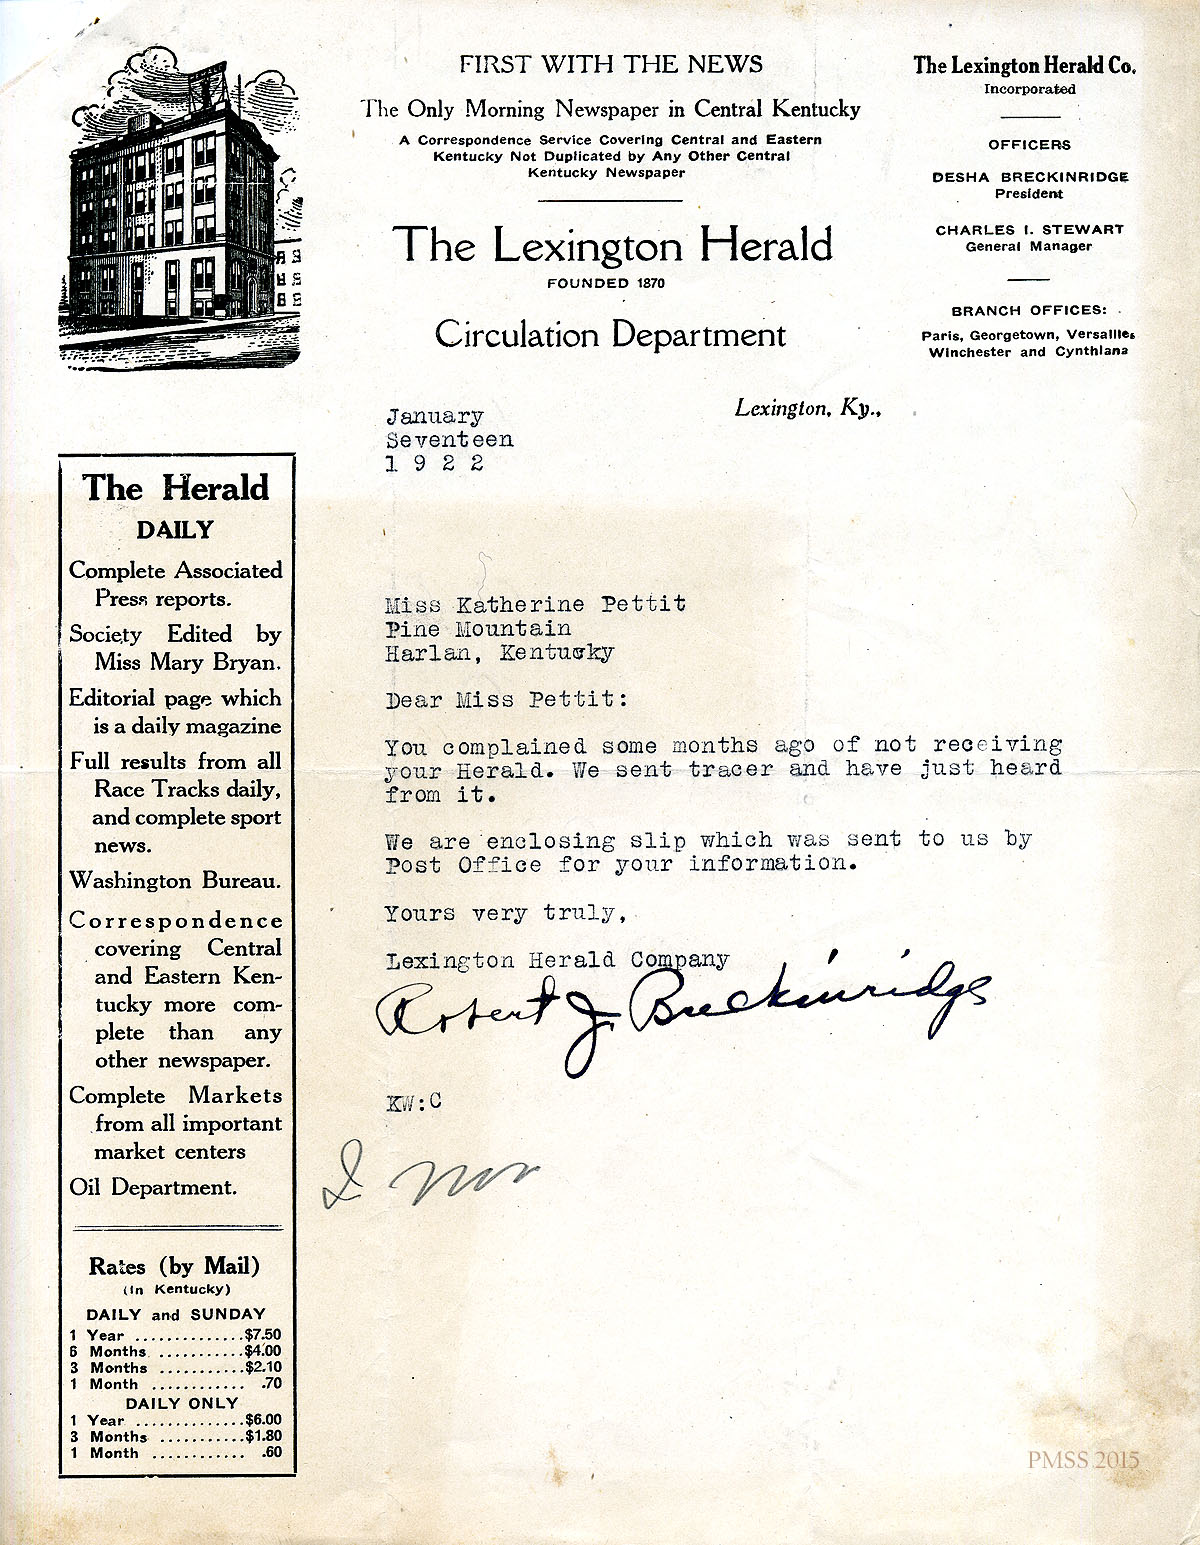 FIRST WITH THE NEWS
The Only Morning Newspaper in Central Kentucky
A Correspondence Service Covering Central and Eastern
Kentucky Not Duplicated by Any Other Central
Kentucky Newspaper
The Lexington Herald
FOUNDED 1870
Circulation Department
The Lexington Herald Co.
Incorporated
OFFICERS
DESHA BRECKINRIDGE
President
CHARLES I. STEWART
General Manager
BRANCH OFFICES:
Paris, Georgetown, Versailles
Winchester and Cynthiana
Lexington, Ky.,
January
Seventeen
1 9 2 2
The Herald
DAILY
Complete Associated
Press reports.
Society Edited by
Miss Mary Bryan.
Editorial page which
is a daily magazine
Full results from all
Race Tracks daily,
and complete sport
news.
Washington Bureau.
Correspondence
covering Central
and Eastern Ken-
tucky more com-
plete than any
other newspaper.
Complete Markets
from all important
market centers
Oil Department.
Rates (by Mail)
(In Kentucky)
DAILY and SUNDAY
1 Year ..............$7.50
6 Months ...........$4.00
3 Months ...........$2.10
1 Month ............ .70
DAILY ONLY
1 Year ..............$6.00
3 Months ...........$1.80
1 Month ............ .60
Miss Katherine Pettit
Pine Mountain
Harlan, Kentucky
Dear Miss Pettit:
You complained some months ago of not receiving
your Herald. We sent tracer and have just heard
from it.
We are enclosing slip which was sent to us by
Post Office for your information.
Yours very truly,
Lexington Herald Company
Robert J. Breckinridge
KW:C
PMSS 2015